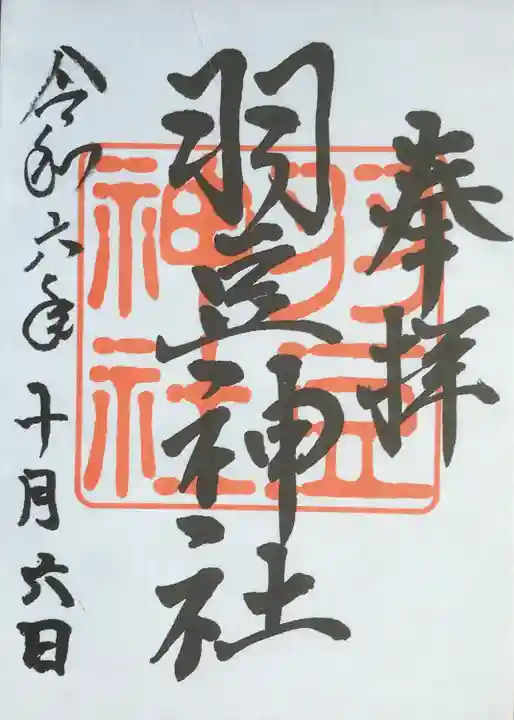 奉拝
羽豆神社
羽豆
神社
令和六年十月六日